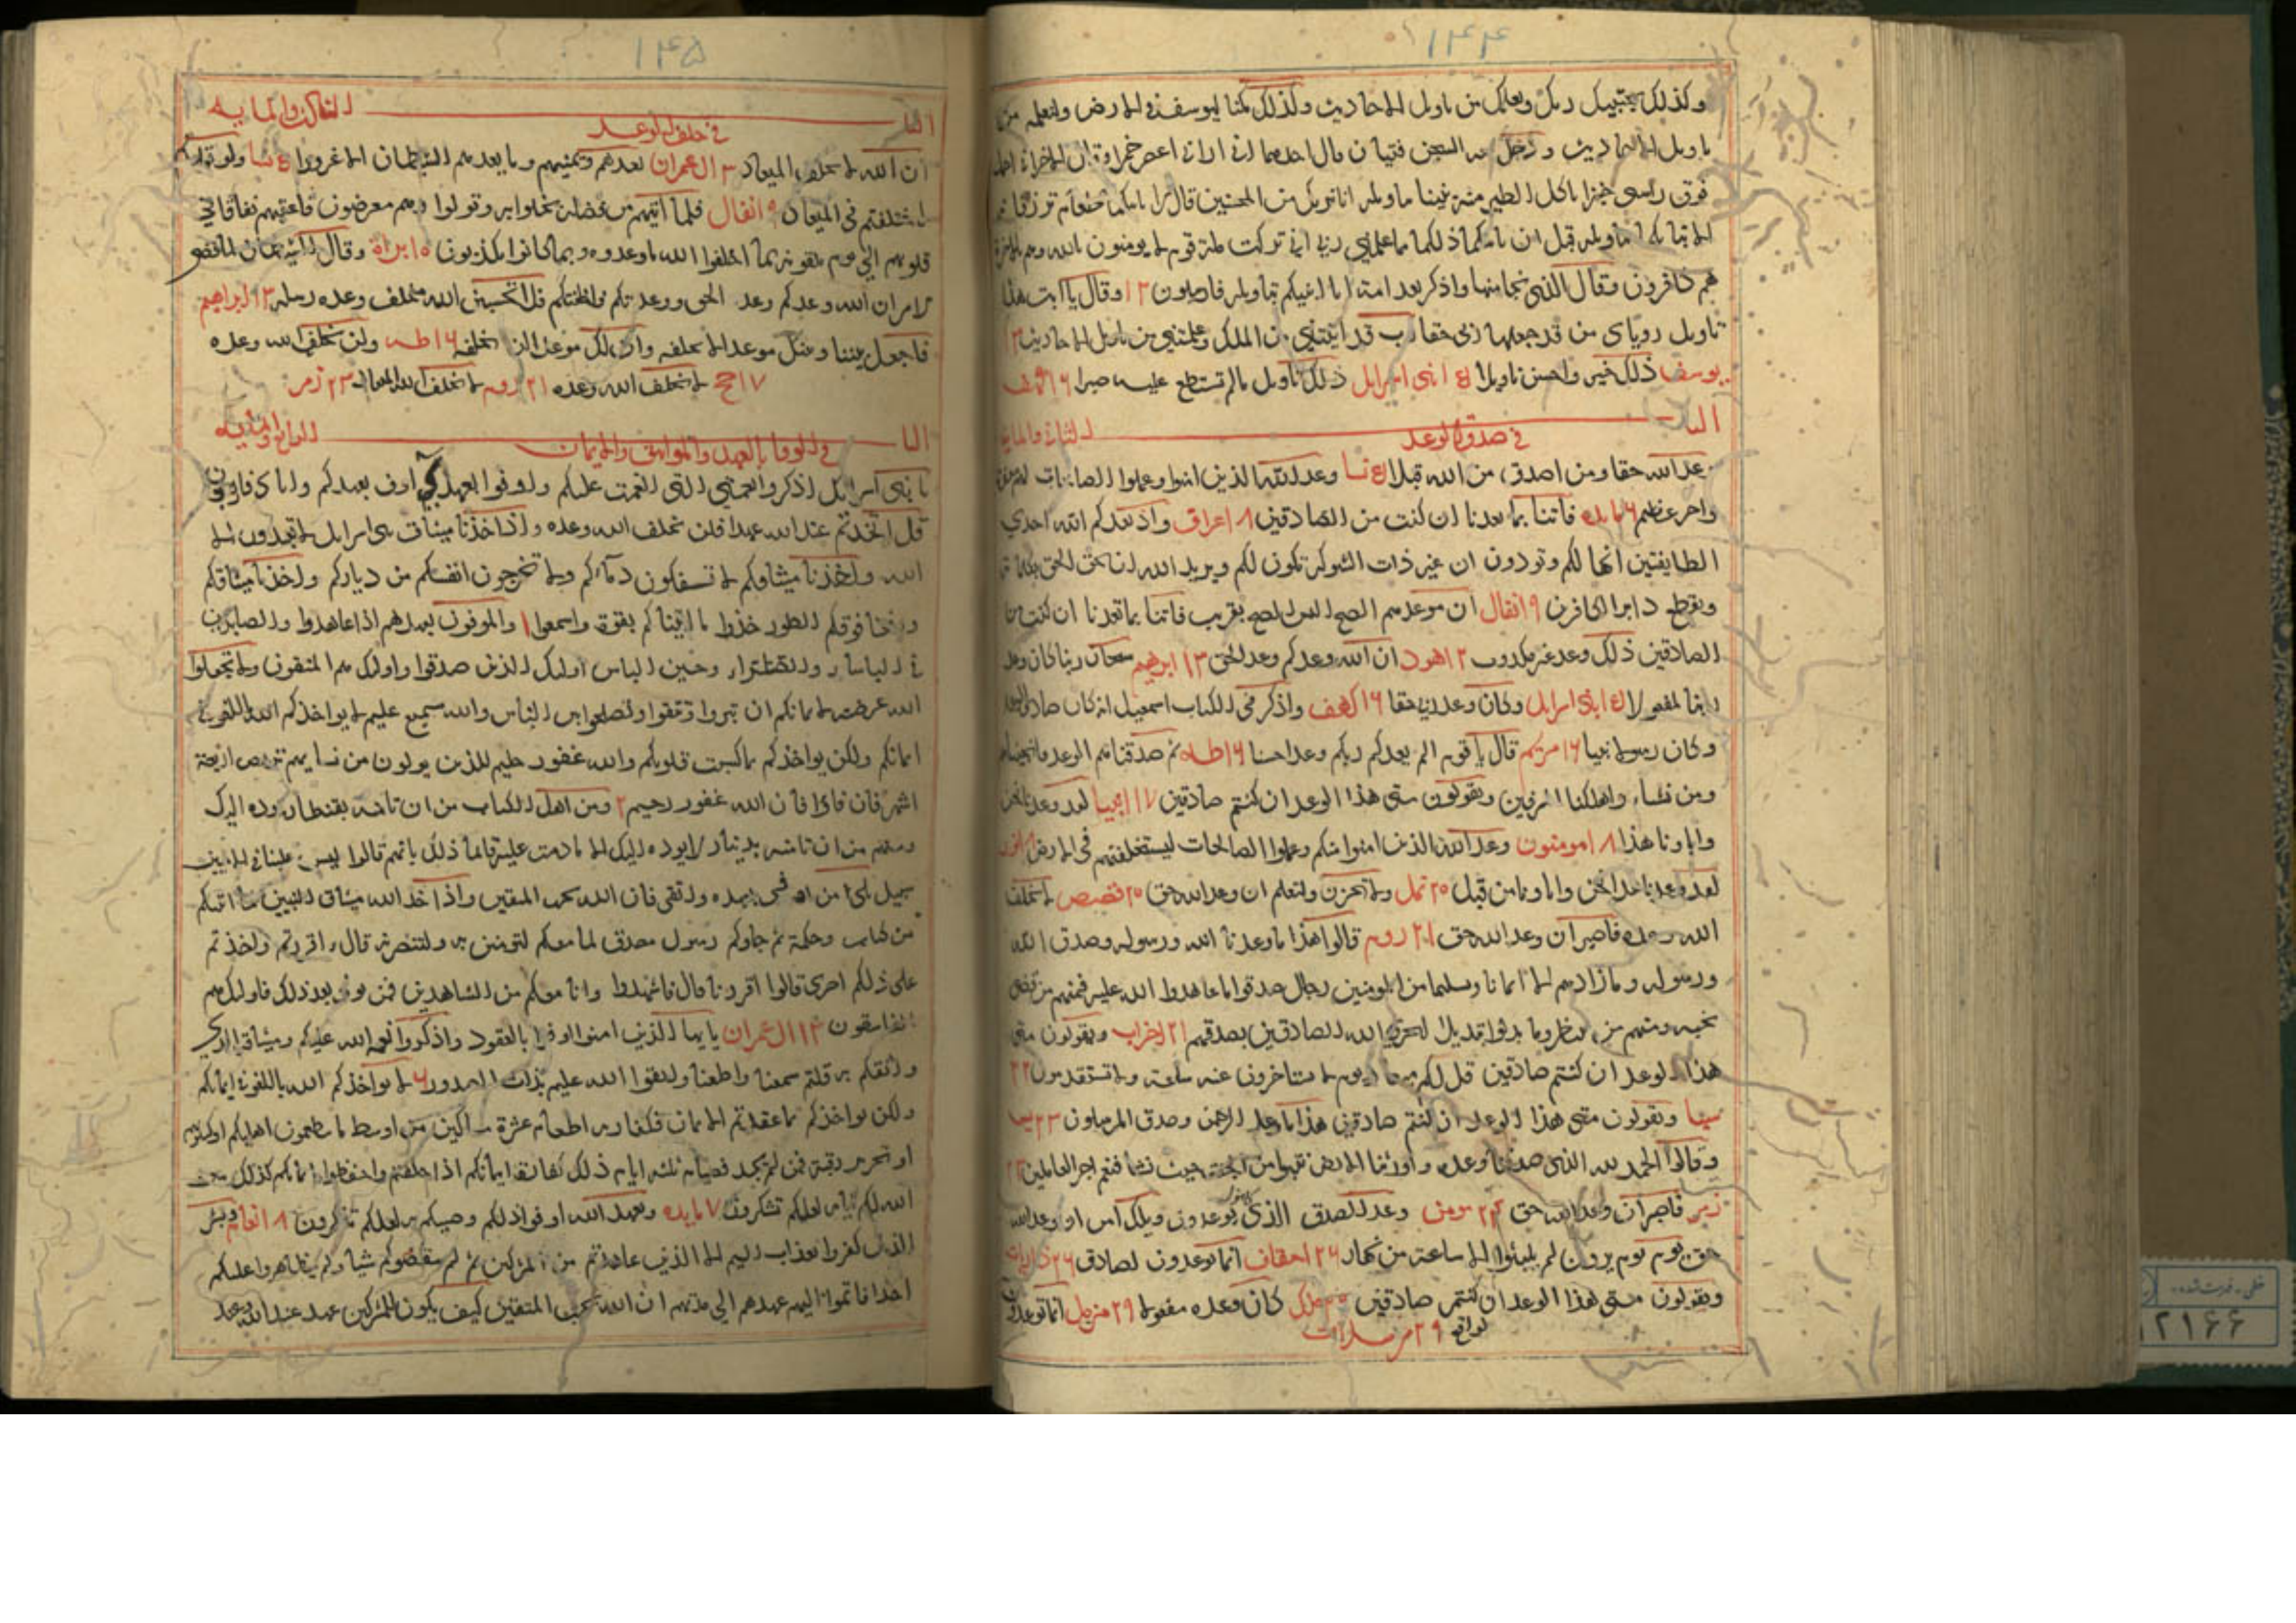 ۱۴۴
وكذلك يجتبيك ربك ويعلمك من تاويل الاحاديث وكذلك مكنا ليوسف في الارض ولنعلمه من
تاويل الاحاديث ودخل معه السجن فتيان قال احدهما اني اراني اعصر خمرا وقال الاخر اني احمل
فوق راسي خبزا تاكل الطير منه نبئنا بتاويله انا نريك من المحسنين قال لا ياتيكما طعام ترزقانه
الا نباتكما بتاويله قبل ان ياتيكما ذلكما مما علمني ربي اني تركت ملة قوم لا يومنون بالله وهم بالاخرة
هم كافرون وقال الذي نجا منهما وادكر بعد امة انا انبئكم بتاويله فارسلون ۱۲ وقال يا ابت هذا
تاويل روياي من قد جعلها ربي حقا رب قد اتيتني من الملك وعلمتني من تاويل الاحاديث ۱۳
يوسف ذلك خير واحسن تاويلا ۱۵ بني اسرايل ذلك تاويل مالم تستطع عليه صبرا ۱۶ كهف
البا الثاني والمايه
في صدق الوعد
وعد الله حقا ومن اصدق من الله قيلا ۵ نسا وعد الله الذين امنوا وعملوا الصالحات لهم مغفرة
واجر عظيم ۶ مايده فاتنا بما تعدنا ان كنت من الصادقين ۸ اعراف واذ يعدكم الله احدي
الطايفتين انها لكم وتودون ان غير ذات الشوكة تكون لكم ويريد الله ان يحق الحق بكلماته
ويقطع دابر الكافرين ۹ انفال ان موعدهم الصبح اليس الصبح بقريب فاتنا بما تعدنا ان كنت من
الصادقين ذلك وعد غير مكذوب ۱۲ هود ان الله وعدكم وعد الحق ۱۳ ابرهيم سبحان ربنا ان كان وعد
ربنا لمفعولا ۱۵ بني اسرايل وكان وعد ربي حقا ۱۶ كهف واذكر في الكتاب اسمعيل انه كان صادق الوعد
وكان رسولا نبيا ۱۶ مريم قال يا قوم الم يعدكم ربكم وعدا حسنا ۱۶ طه ثم صدقناهم الوعد فانجيناهم
ومن نشاء واهلكنا المسرفين ويقولون متي هذا الوعد ان كنتم صادقين ۱۷ انبيا لقد وعدنا نحن
واباونا هذا ۱۸ مومنون وعد الله الذين امنوا منكم وعملوا الصالحات ليستخلفنهم في الارض ۱۸ نور
لقد وعدنا هذا نحن واباونا من قبل ۲۰ نمل ولا تحزن ولتعلم ان وعد الله حق ۲۰ قصص لا يخلف
الله وعده فاصبر ان وعد الله حق ۲۱ روم قالوا هذا ما وعدنا الله ورسوله وصدق الله
ورسوله وما زادهم الا ايمانا وتسليما من المومنين رجال صدقوا ما عاهدوا الله عليه فمنهم من قضي
نحبه ومنهم من ينتظر وما بدلوا تبديلا ليجزي الله الصادقين بصدقهم ۲۱ احزاب ويقولون متي
هذا الوعد ان كنتم صادقين قل لكم ميعاد يوم لا تستاخرون عنه ساعة ولا تستقدمون ۲۲
سبا ويقولون متي هذا الوعد ان كنتم صادقين هذا ما وعد الرحمن وصدق المرسلون ۲۳ يس
وقالوا الحمد لله الذي صدقنا وعده واورثنا الارض نتبوا من الجنة حيث نشا فنعم اجر العاملين
زمر فاصبر ان وعد الله حق ۲۴ مومن وعد الصدق الذي كانوا يوعدون ويلك آمن ان وعد الله
حق يوم يوم يرون لم يلبثوا الا ساعة من نهار ۲۶ احقاف انما توعدون لصادق ۲۶ ذاريات
ويقولون متي هذا الوعد ان كنتم صادقين ملك كان وعده مفعولا ۲۹ مزمل انما توعدون
لواقع ۲۹ مرسلات
۱۴۵
البا الثالث والمايه
في خلف الوعد
ان الله لا يخلف الميعاد ۳ ال عمران يعدهم ويمنيهم وما يعدهم الشيطان الا غرورا ۵ نسا ولو تواعدتم
لاختلفتم في الميعاد ۹ انفال فلما آتيهم من فضله بخلوا به وتولوا وهم معرضون فاعقبهم نفاقا في
قلوبهم الي يوم يلقونه بما اخلفوا الله ما وعدوه وبما كانوا يكذبون ۱۰ براة وقال الشيطان لما قضي
الامر ان الله وعدكم وعد الحق ووعدتكم فاخلفتكم فلا تحسبن الله مخلف وعده رسله ۱۳ ابراهيم
فاجعل بيننا وبينك موعدا لا نخلفه وان لك موعدا لن تخلفه ۱۶ طه ولن يخلف الله وعده
۱۷ حج لا يخلف الله وعده ۲۱ روم لا يخلف الله الميعاد ۲۳ زمر
البا الرابع والمايه
في الوفا بالعهد والمواثيق والايمان
يا بني اسرايل اذكروا نعمتي التي انعمت عليكم واوفوا بعهدي اوف بعهدكم واياي فارهبون
قل اتخذتم عند الله عهدا فلن يخلف الله وعده واذ اخذنا ميثاق بني اسرايل لا تعبدون الا
الله واذ اخذنا ميثاقكم لا تسفكون دمآءكم ولا تخرجون انفسكم من دياركم واذ اخذنا ميثاقكم
ورفعنا فوقكم الطور خذوا ما اتيناكم بقوة واسمعوا ۱ والموفون بعهدهم اذا عاهدوا والصابرين
في الباساء والضراء وحين الباس اوليك الذين صدقوا واوليك هم المتقون ولا تجعلوا
الله عرضة لايمانكم ان تبروا وتتقوا وتصلحوا بين الناس والله سميع عليم لا يواخذكم الله باللغو في
ايمانكم ولكن يواخذكم بما كسبت قلوبكم والله غفور حليم للذين يولون من نسايهم تربص اربعة
اشهر فان فاوا فان الله غفور رحيم ۲ ومن اهل الكتاب من ان تامنه بقنطار يوده اليك
ومنهم من ان تامنه بدينار لا يوده اليك الا ما دمت عليه قايما ذلك بانهم قالوا ليس علينا في الاميين
سبيل بلي من اوفي بعهده واتقي فان الله يحب المتقين واذ اخذ الله ميثاق النبيين لما اتيتكم
من كتاب وحكمة ثم جاوكم رسول مصدق لما معكم لتومنن به ولتنصرنه قال ءاقررتم واخذتم
علي ذلكم اصري قالوا اقررنا قال فاشهدوا وانا معكم من الشاهدين فمن تولي بعد ذلك فاوليك هم
الفاسقون ۳ ال عمران يا ايها الذين امنوا اوفوا بالعقود واذكروا نعمة الله عليكم وميثاقه الذي
واثقكم به قلتم سمعنا واطعنا واتقوا الله عليم بذات الصدور ۶ لا يواخذكم الله باللغو في ايمانكم
ولكن يواخذكم بما عقدتم الايمان فكفارته اطعام عشرة مساكين من اوسط ما تطعمون اهليكم او كسوتهم
او تحرير رقبة فمن لم يجد فصيام ثلثة ايام ذلك كفارة ايمانكم اذا حلفتم واحفظوا ايمانكم كذلك يبين
الله لكم آياته لعلكم تشكرون ۷ مايده وبعهد الله اوفوا ذلكم وصيكم به لعلكم تذكرون ۸ انعام وبشر
الذين كفروا بعذاب اليم الا الذين عاهدتم من المشركين ثم لم ينقصوكم شيا ولم يظاهروا عليكم
احدا فاتموا اليهم عهدهم الي مدتهم ان الله يحب المتقين كيف يكون للمشركين عهد عند الله وعند
۱۲۱۶۶